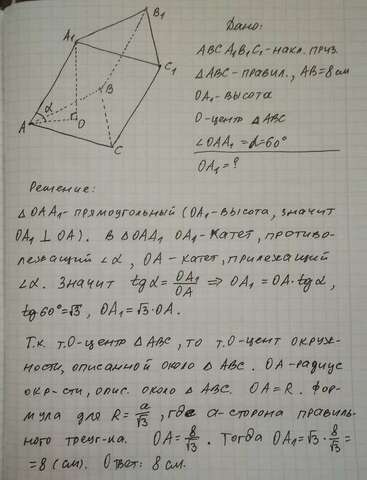 Дано:
ABCA₁B₁C₁ - накл. приз.
△ABC - правил., AB = 8 см
OA₁ - высота
O - центр △ABC
∠OAA₁ = α = 60°
OA₁ = ?
B₁
A₁
C₁
B
α
A
O
C
Решение:
△OAA₁ - прямоугольный (OA₁ - высота, значит
OA₁ ⊥ OA). В △OAA₁ OA₁ - катет, противо-
лежащий ∠α, OA - катет, прилежащий
∠α. Значит tgα = OA₁/OA ⇒ OA₁ = OA·tgα,
tg60° = √3, OA₁ = √3·OA.
Т.к т.O - центр △ABC, то т.O - цент окруж-
ности, описанной около △ABC. OA - радиус
окр-сти, опис. около △ABC. OA = R. Фор-
мула для R = a/√3, где a - сторона правиль-
ного треуг-ка. OA = 8/√3. Тогда OA₁ = √3·8/√3 =
= 8 (см). Ответ: 8 см.